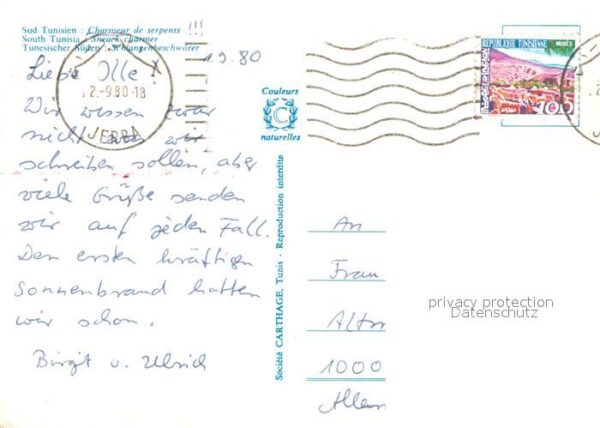 Sud Tunisien : Charmeur de serpents
South Tunisia : Sneack charmer
Tunesischer Süden : Schlangenbeschwörer
!!!
1.9.80
Liebe Ille!
Wir wissen zwar
nicht was wir
schreiben sollen, aber
viele Grüße senden
wir auf jeden Fall.
Den ersten kräftigen
Sonnenbrand hatten
wir schon.
Birgit u. Ulrich
2.-9.80-18
JERBA
Couleurs
C
naturelles
Société CARTHAGE, Tunis - Reproduction interdite
REPUBLIQUE TUNISIENNE
MIDES
100
An
Frau
privacy protection
Datenschutz
1000